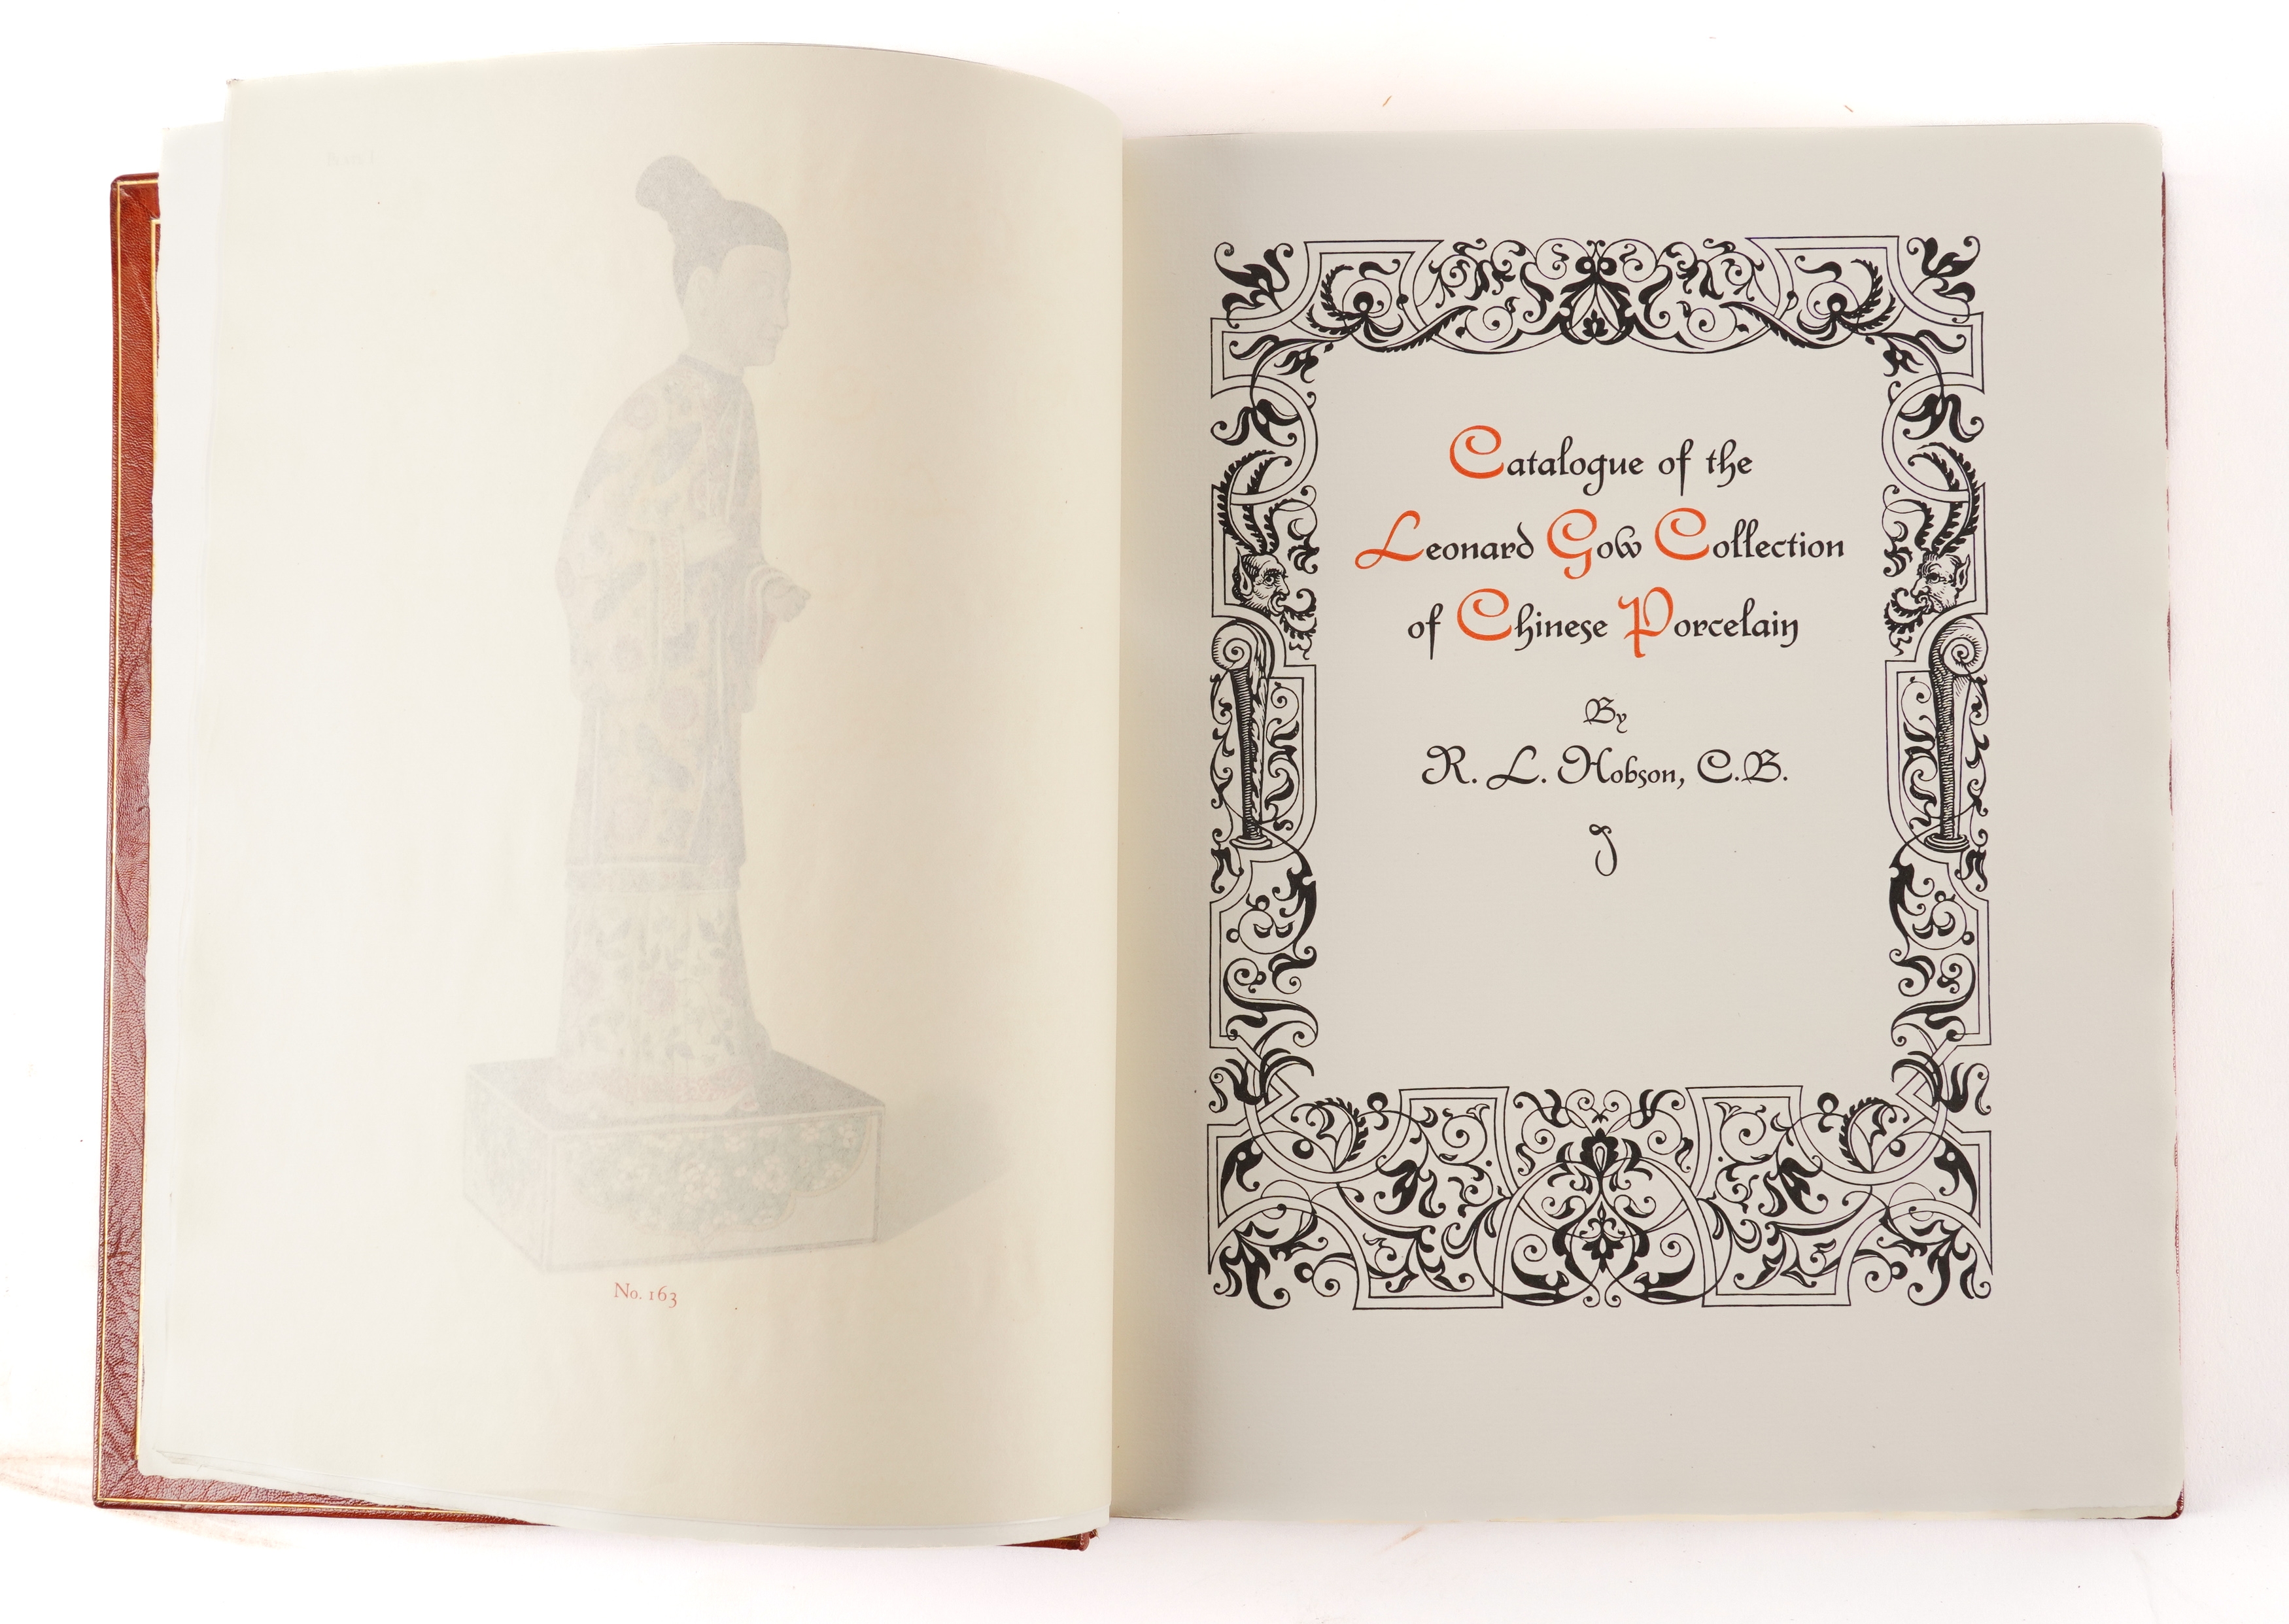 Plate I
No. 163
Catalogue of the
Leonard Gow Collection
of Chinese Porcelain
By
R. L. Hobson, C.B.